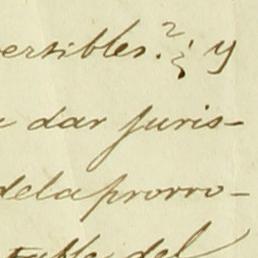 ersibles.² ; y
dar juris-
delaprorro-
del